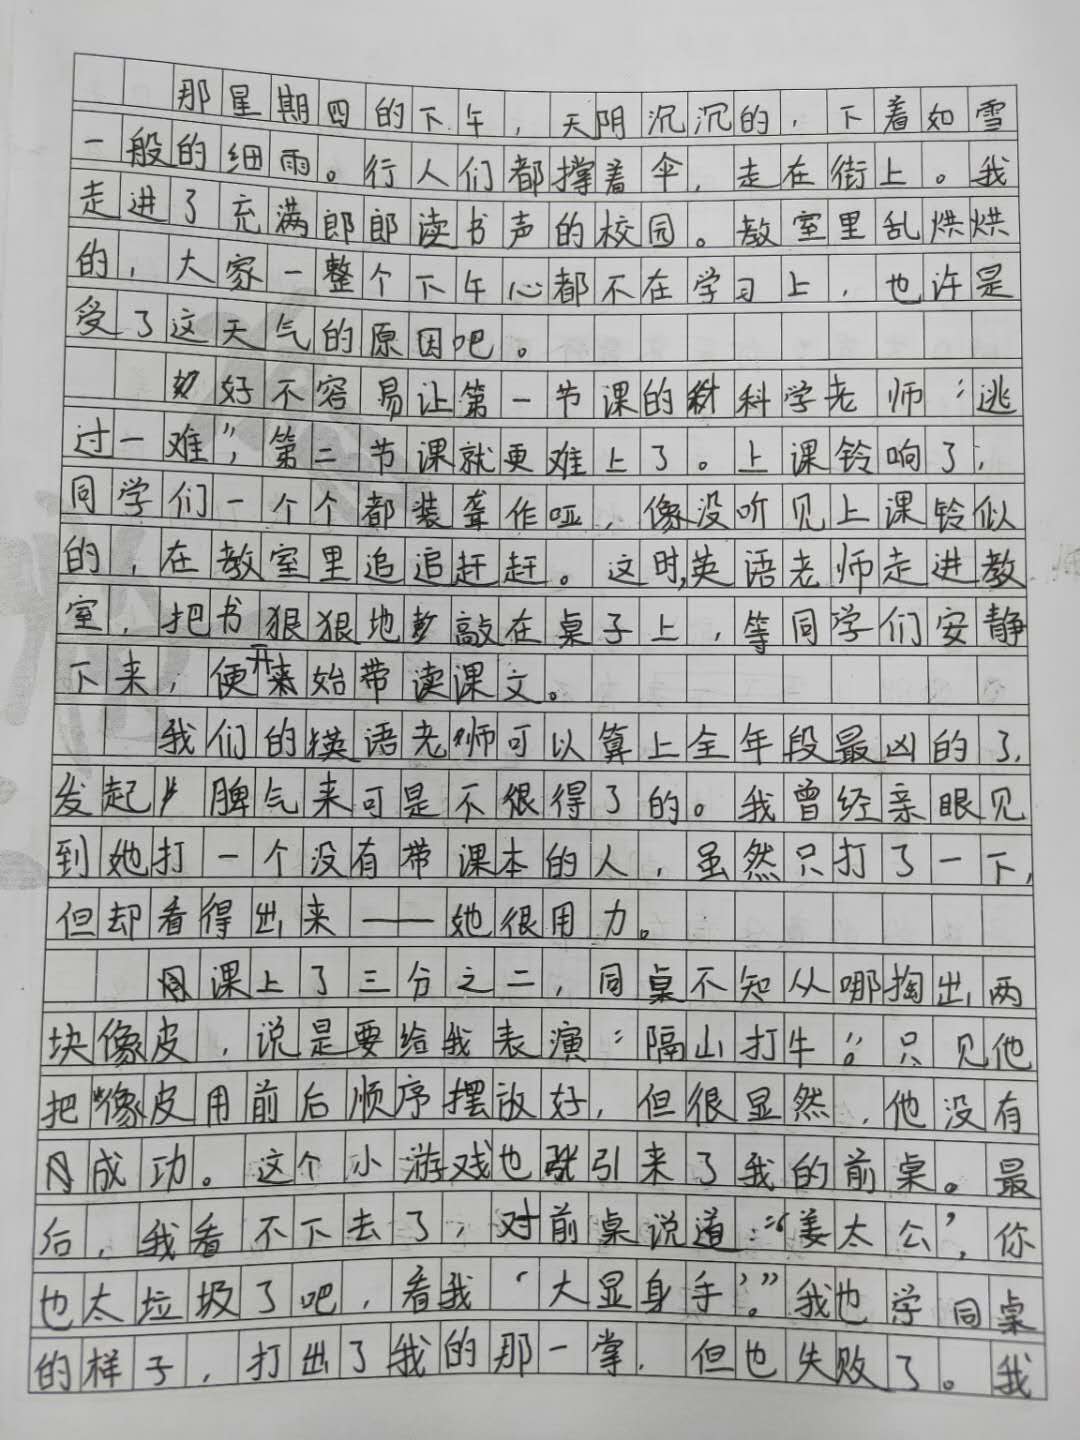 那星期四的下午，天阴沉沉的，下着如雪
一般的细雨。行人们都撑着伞，走在街上。我
走进了充满郎郎读书声的校园。教室里乱烘烘
的，大家一整个下午心都不在学习上，也许是
受了这天气的原因吧。
好不容易让第一节课的科学老师“逃
过一难”，第二节课就更难上了。上课铃响了，
同学们一个个都装聋作哑，像没听见上课铃似
的，在教室里追追赶赶。这时，英语老师走进教
室，把书狠狠地敲在桌子上，等同学们安静
下来，便开始带读课文。
我们的英语老师可以算上全年段最凶的了，
发起脾气来可是不很得了的。我曾经亲眼见
到她打一个没有带课本的人，虽然只打了一下，
但却看得出来——她很用力。
课上了三分之二，同桌不知从哪掏出两
块像皮，说是要给我表演“隔山打牛”。只见他
把像皮用前后顺序摆放好，但很显然，他没有
成功。这个小游戏也引来了我的前桌。最
后，我看不下去了，对前桌说道：“‘姜太公’，你
也太垃圾了吧，看我‘大显身手’。”我也学同桌
的样子，打出了我的那一掌，但也失败了。我